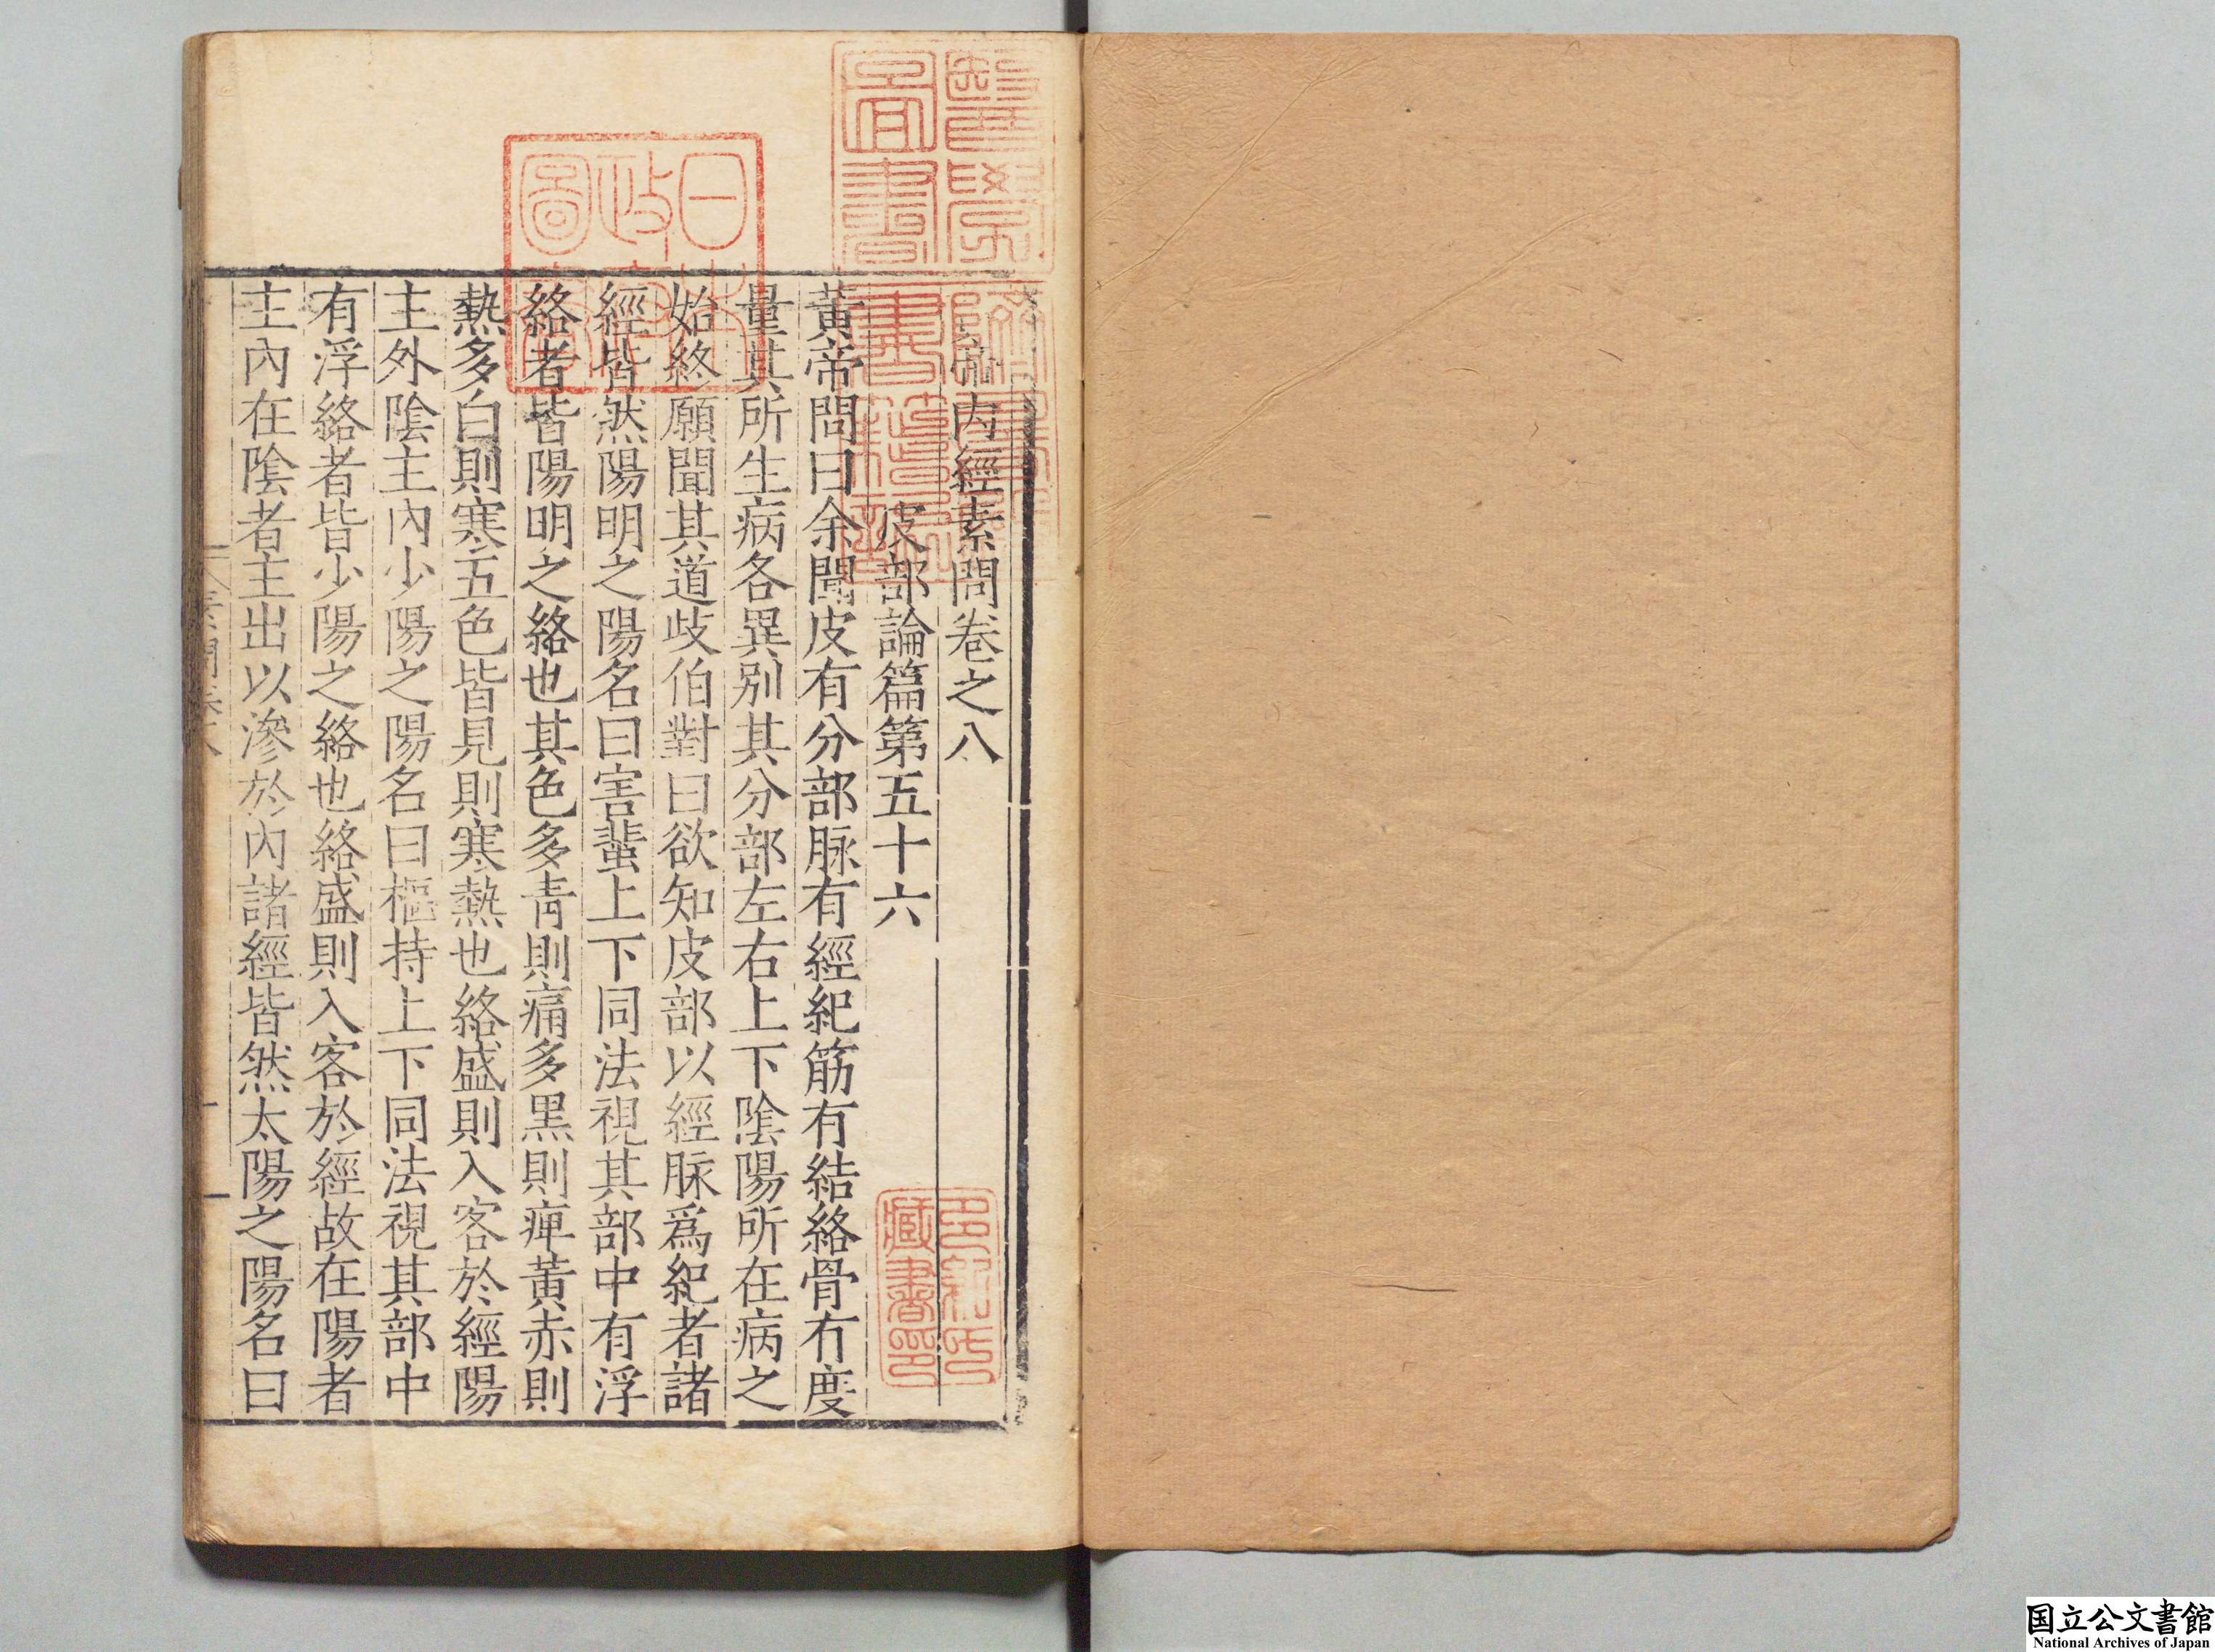 黃帝內經素問卷之八
皮部論篇第五十六
黃帝問曰余聞皮有分部脉有經紀筋有結絡骨有度
量其所生病各異别其分部左右上下陰陽所在病之
始終願聞其道歧伯對曰欲知皮部以經脉爲紀者諸
經皆然陽明之陽名曰害蜚上下同法視其部中有浮
絡者皆陽明之絡也其色多靑則痛多黑則痺黃赤則
熱多白則寒五色皆見則寒熱也絡盛則入客於經陽
主外陰主內少陽之陽名曰樞持上下同法視其部中
有浮絡者皆少陽之絡也絡盛則入客於經故在陽者
主內在陰者主出以滲於內諸經皆然太陽之陽名曰
素問卷八
醫學圖書
日本政府圖書
躋壽殿書籍記
多紀氏藏書印
国立公文書館
National Archives of Japan